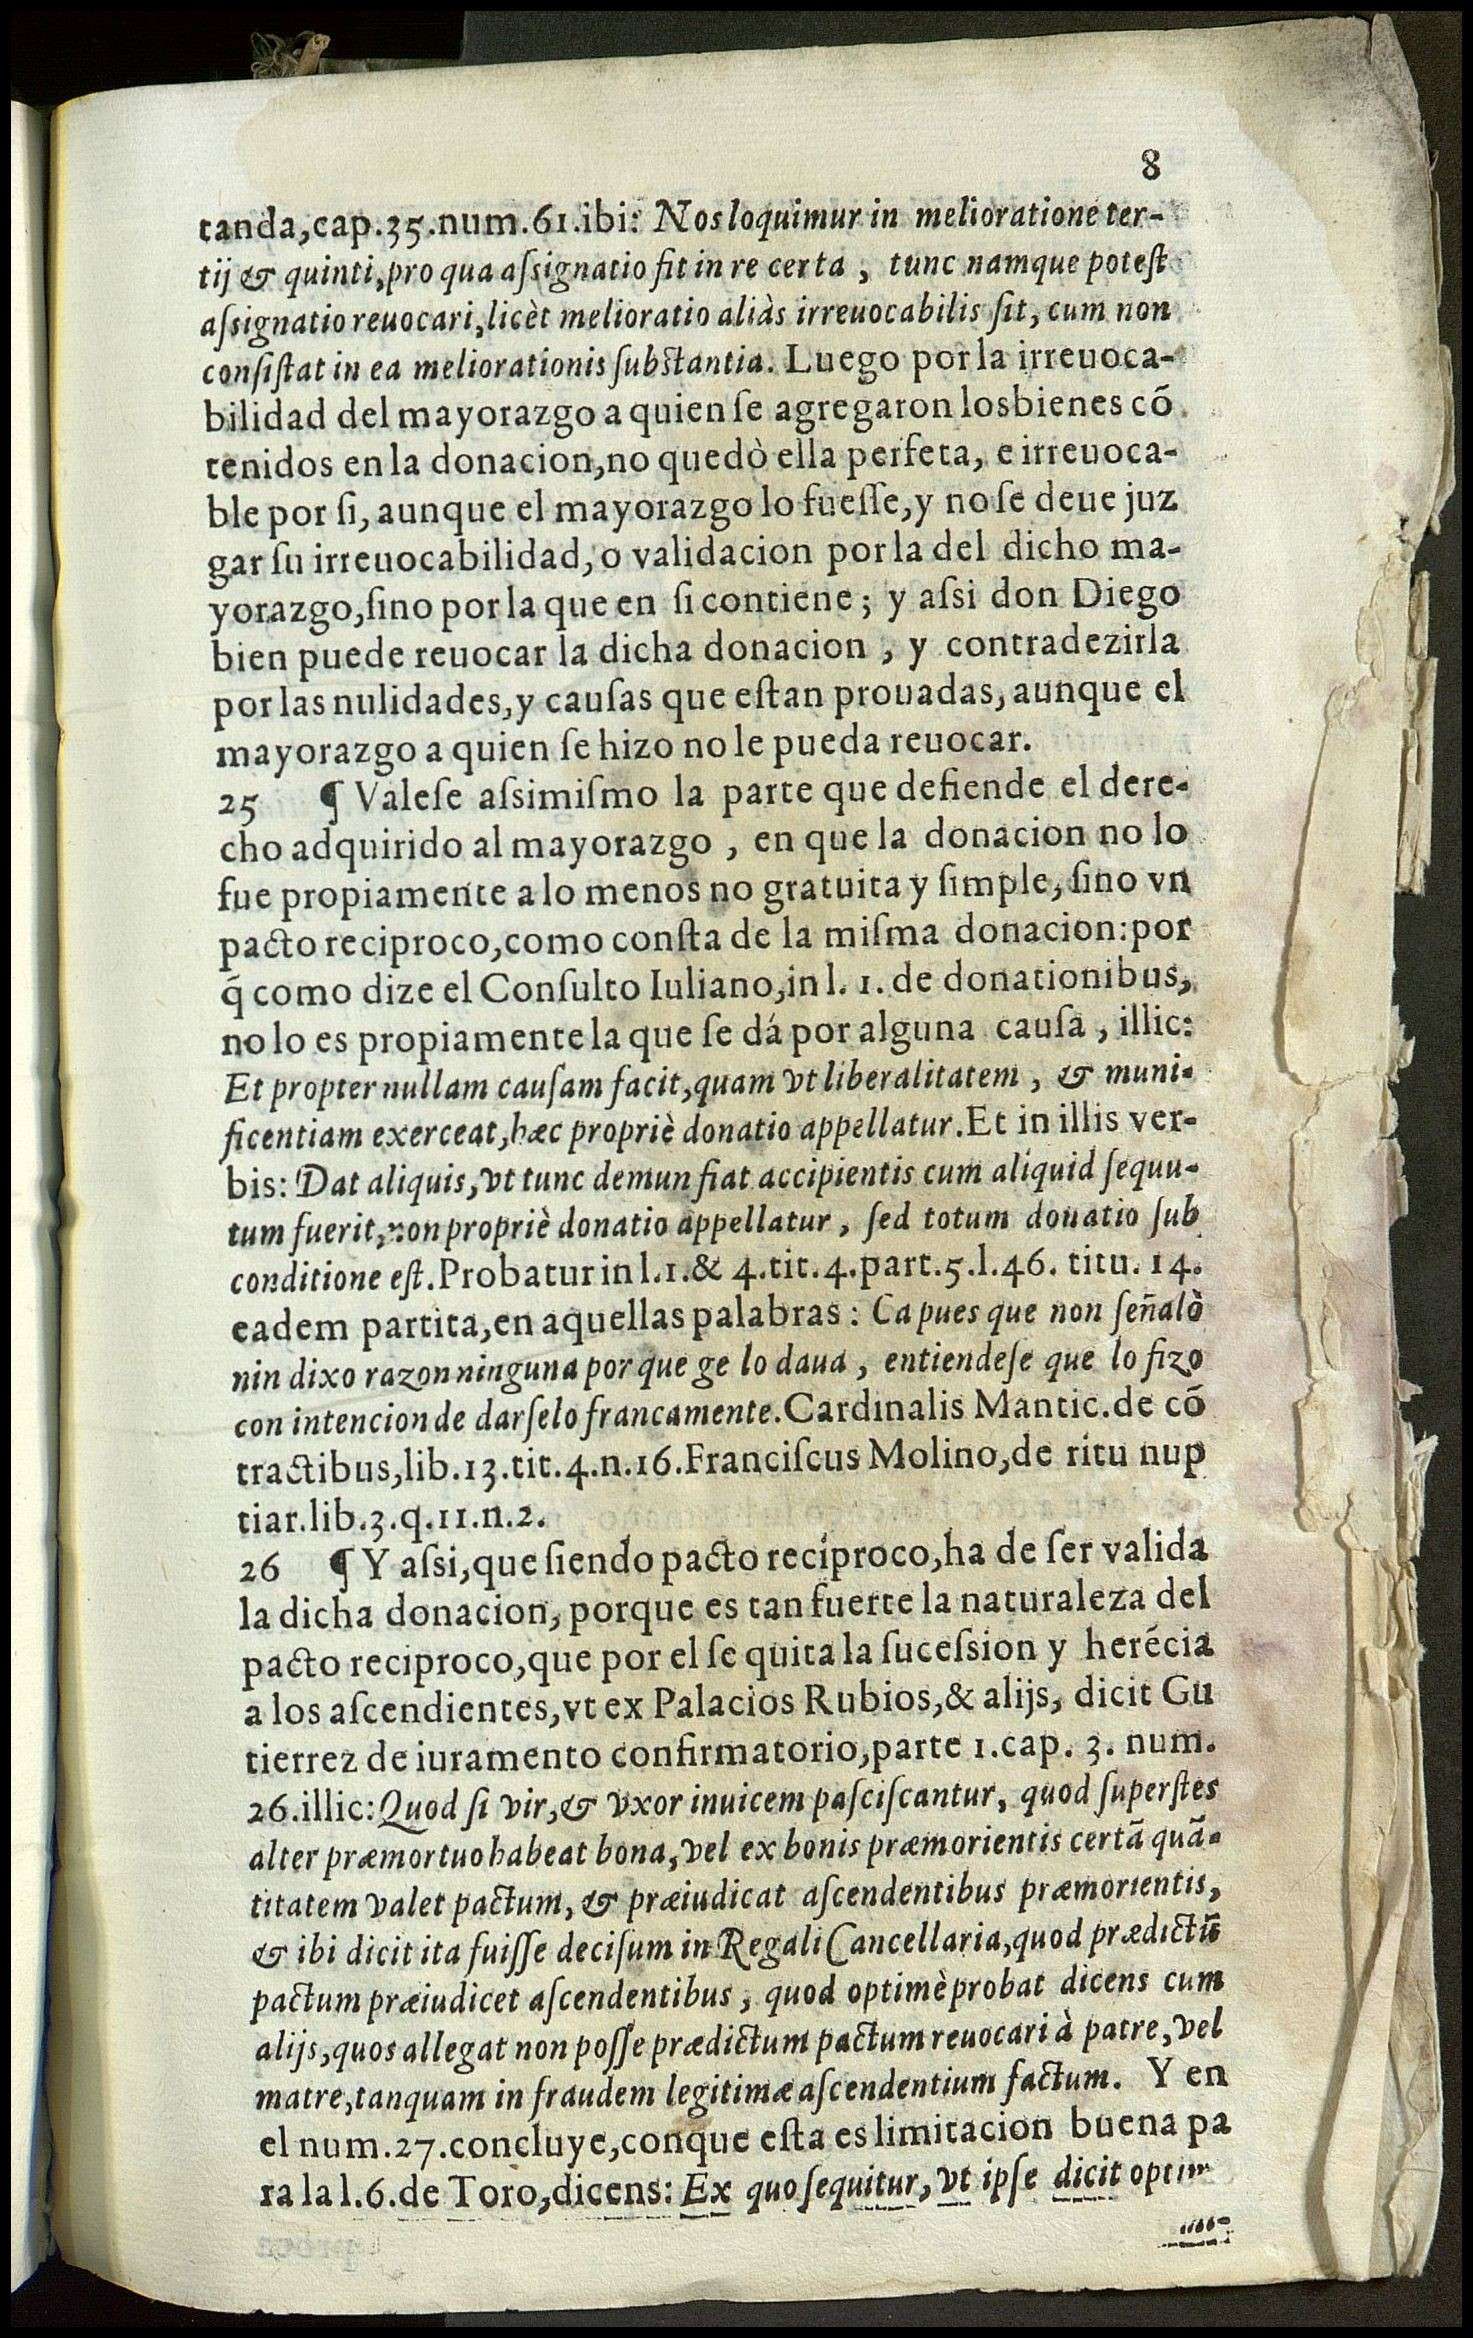 8
tanda,cap.35.num.61.ibi: Nos loquimur in melioratione ter-
tij & quinti,pro qua aſsignatio fit in re certa , tunc namque poteſt
aſsignatio reuocari,licèt melioratio aliàs irreuocabilis ſit, cum non
conſiſtat in ea meliorationis ſubſtantia. Luego por la irreuoca-
bilidad del mayorazgo a quien ſe agregaron los bienes cõ
tenidos en la donacion,no quedò ella perfeta, e irreuoca-
ble por ſi, aunque el mayorazgo lo fueſſe,y no ſe deue juz
gar ſu irreuocabilidad, o validacion por la del dicho ma-
yorazgo,ſino por la que en ſi contiene; y aſsi don Diego
bien puede reuocar la dicha donacion , y contradezirla
por las nulidades,y cauſas que eſtan prouadas, aunque el
mayorazgo a quien ſe hizo no le pueda reuocar.
25 ¶ Valeſe aſsimiſmo la parte que defiende el dere-
cho adquirido al mayorazgo , en que la donacion no lo
fue propiamente a lo menos no gratuita y ſimple, ſino vn
pacto reciproco,como conſta de la miſma donacion:por
q̃ como dize el Conſulto Iuliano,in l. 1. de donationibus,
no lo es propiamente la que ſe dá por alguna cauſa , illic:
Et propter nullam cauſam facit,quam vt liberalitatem , & muni-
ficentiam exerceat,hæc propriè donatio appellatur.Et in illis ver-
bis: Dat aliquis,vt tunc demun fiat accipientis cum aliquid ſequu-
tum fuerit,non propriè donatio appellatur , ſed totum donatio ſub
conditione eſt.Probatur in l.1.& 4.tit.4.part.5.l.46. titu. 14.
eadem partita,en aquellas palabras : Ca pues que non ſeñalò
nin dixo razon ninguna por que ge lo daua , entiendeſe que lo fizo
con intencion de darſelo francamente.Cardinalis Mantic.de cõ
tractibus,lib.13.tit.4.n.16.Franciſcus Molino,de ritu nup
tiar.lib.3.q.11.n.2.
26 ¶ Y aſsi,que ſiendo pacto reciproco,ha de ſer valida
la dicha donacion, porque es tan fuerte la naturaleza del
pacto reciproco,que por el ſe quita la ſuceſsion y herẽcia
a los aſcendientes,vt ex Palacios Rubios,& alijs, dicit Gu
tierrez de iuramento confirmatorio,parte 1.cap. 3. num.
26.illic:Quod ſi vir,& vxor inuicem paſciſcantur, quod ſuperſtes
alter præmortuo habeat bona,vel ex bonis præmorientis certã quã-
titatem valet pactum, & præiudicat aſcendentibus præmorientis,
& ibi dicit ita fuiſſe deciſum in Regali Cancellaria,quod prædictũ
pactum præiudicet aſcendentibus , quod optimè probat dicens cum
alijs,quos allegat non poſſe prædictum pactum reuocari à patre,vel
matre,tanquam in fraudem legitimæ aſcendentium factum. Y en
el num.27.concluye,conque eſta es limitacion buena pa
ra la l.6.de Toro,dicens: Ex quo ſequitur, vt ipſe dicit